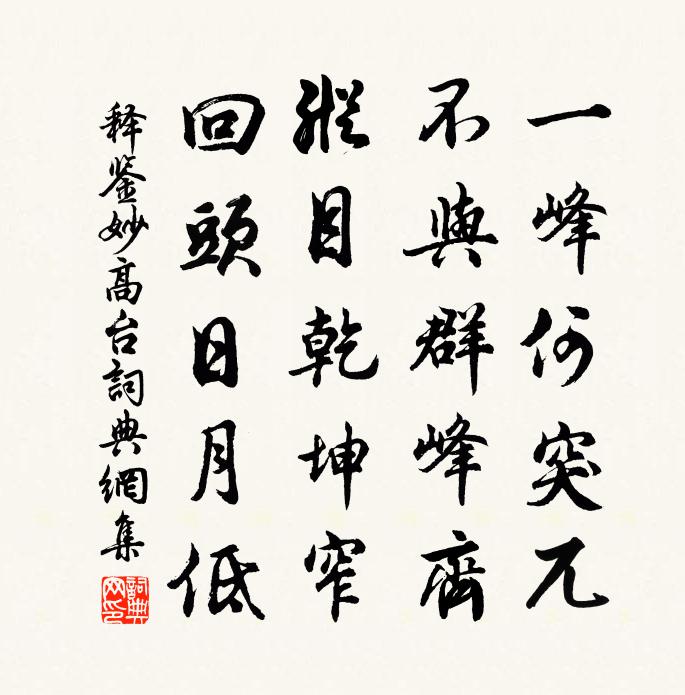 一峰何突兀
不與群峰齊
縱目乾坤窄
回頭日月低
释鉴妙高台詞典網集
詞典
网印